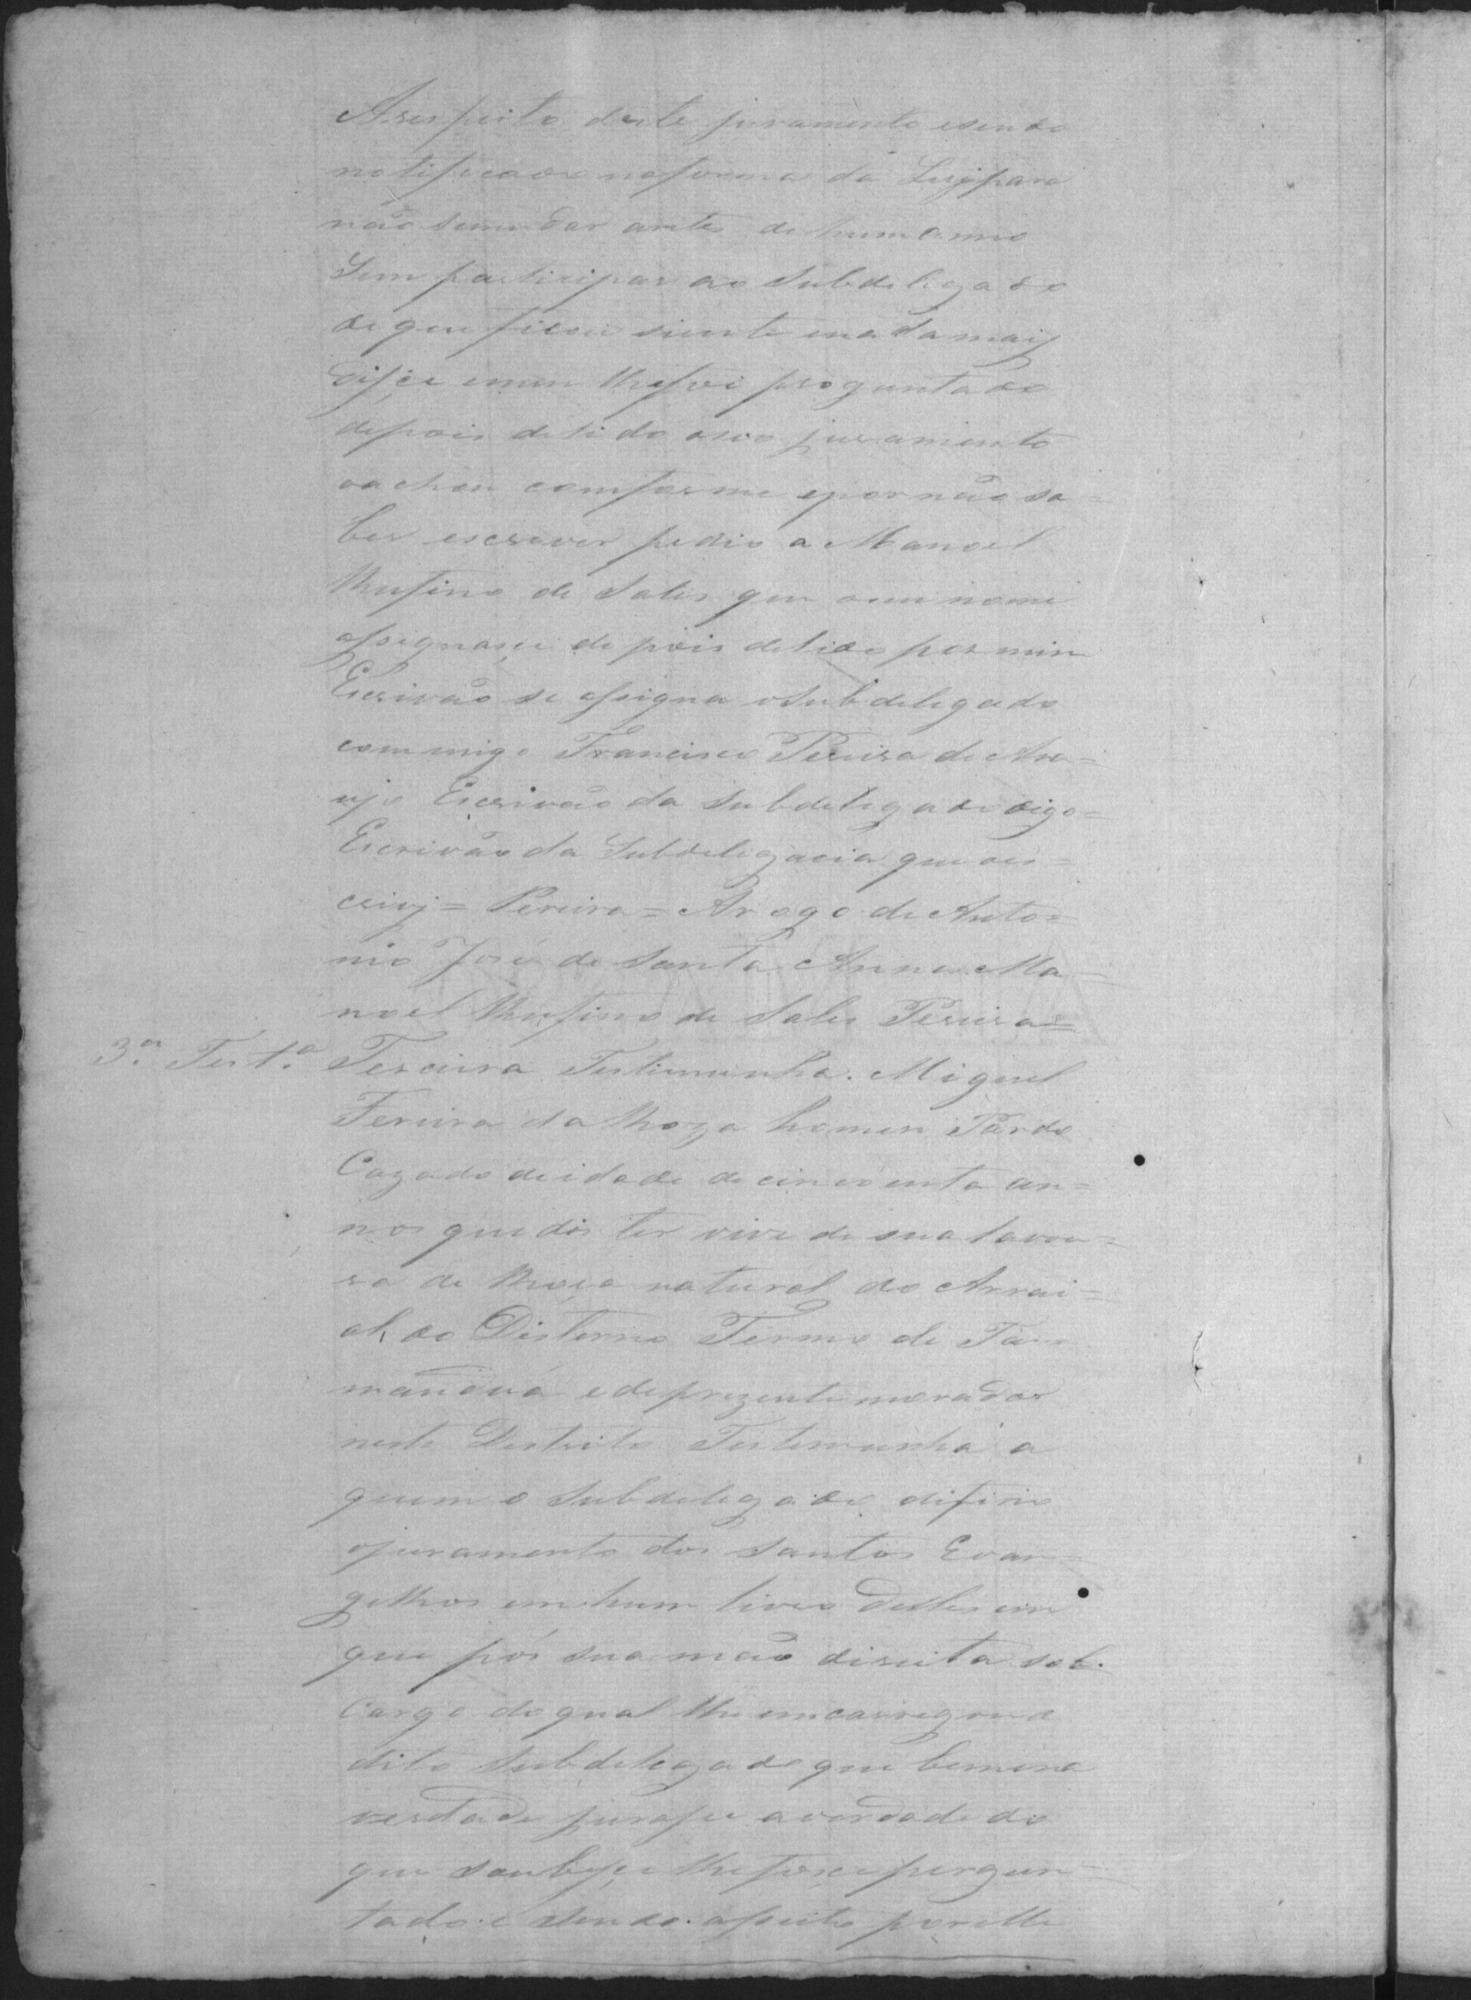 Arespeito deste juramento esendo
notificado naforma da Leij para
não semudar antes dehum anno
Sem participar ao Subdelegado
de que ficou siente enada mais
disce enem lhefoi proguntado
depois delido oseo juramento
oachou comforme epornão sa=
ber escrever pedio a Manoel
Rufino de Sales que aseu nome
assignasce depois delido por mim
Escrivão se assigna oSubdelegado
commigo Francisco Pereira de Ara=
ujo Escrivão da Subdelegado digo=
Escrivão da Subdelegacia que oes=
crivj = Pereira = Arogo de Anto=
nio José de Santa Anna Ma=
noel Rufino de Sales Pereira=
3.ª Test.ª Terceira Testimunha. Miguel
Fereira da Roza homem Pardo
Cazado deidade de cincoenta an=
nos que dis ter vive de sua lavou=
ra de Roça natural do Arrai=
al do Disterro Termo de Ta=
manduá edeprezente morador
neste Destrito Testemunha a
quem o Subdelegado difirio
ojuramento dos Santos Evan=
gelhos emhum livro delles em
que pós sua mão direita sob.
Cargo do qual lhe emcarregou o
dito Subdelegado que bem ena
verdade jurasse averdade do
que soubesce lhefosce pergun=
tado. e sendo. asseito por elle